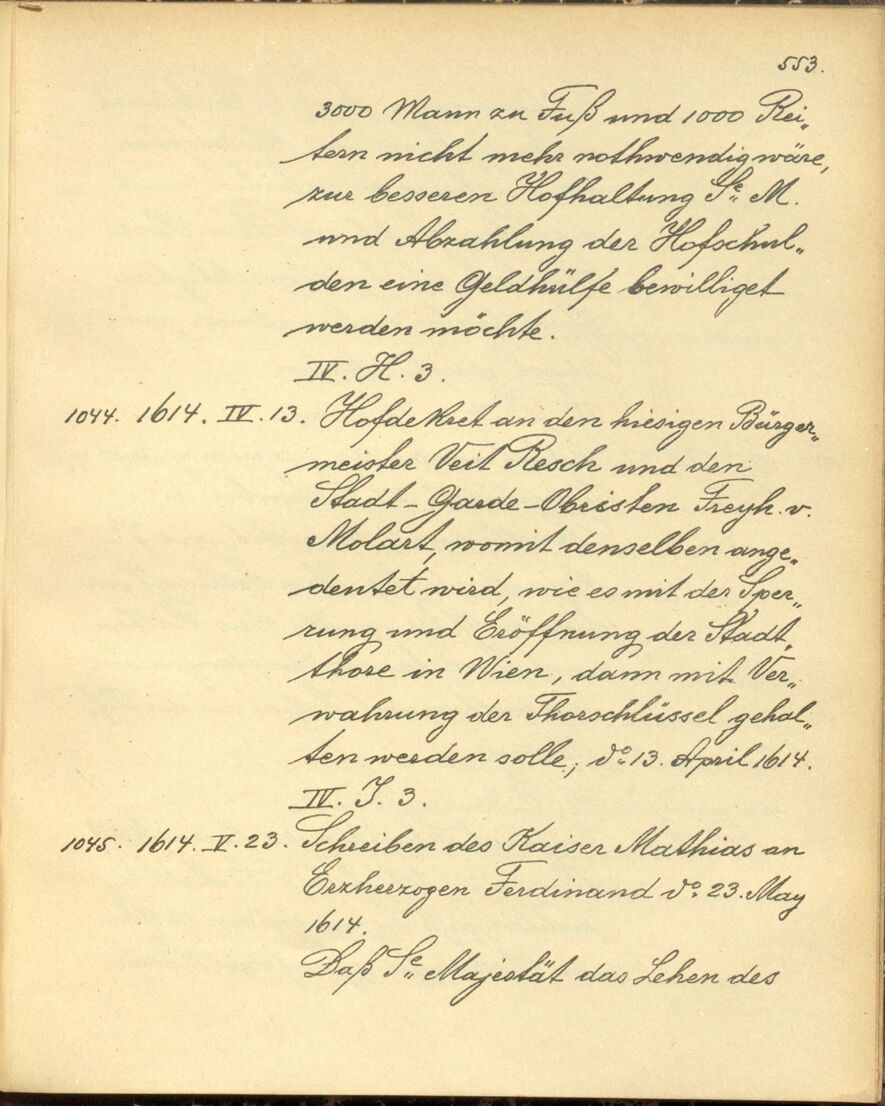 553.
3000 Mann zu Fuß und 1000 Rei„
tern nicht mehr nothwendig wäre,
zur besseren Hofhaltung Se„ M.
und Abzahlung der Hofschul„
den eine Geldhülfe bewilliget
werden möchte.
IV. H. 3.
1044. 1614. IV. 13. Hofdekret an den hiesigen Bürger„
meister Veit Resch und den
Stadt-Garde-Obristen Freyh. v.
Molart, womit denselben ange„
deutet wird, wie es mit der Sper„
rung und Eröffnung der Stadt„
thore in Wien, dann mit Ver„
wahrung der Thorschlüssel gehal„
ten werden solle; do: 13. April 1614.
IV. J. 3.
1045. 1614. V. 23. Schreiben des Kaiser Mathias an
Erzherzogen Ferdinand do: 23. May
1614.
Daß Se„ Majestät das Lehen des